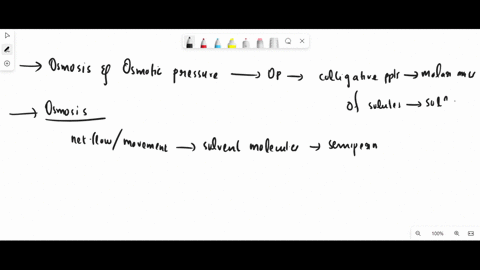 → Osmosis & Osmotic pressure → OP → colligative ppts → molar mass
of solutes → solⁿ.
→ Osmosis
net flow/movement → solvent molecules → semiperm
100%